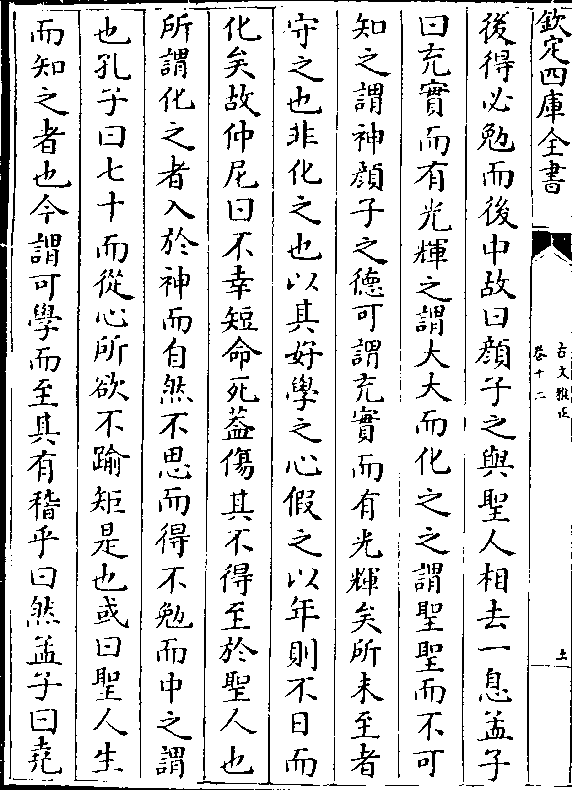 欽定四庫全書
古文雅正
卷十二
土
後得必勉而後中故曰顔子之與聖人相去一息孟子
曰充實而有光輝之謂大大而化之之謂聖聖而不可
知之謂神顔子之德可謂充實而有光輝矣所未至者
守之也非化之也以其好學之心假之以年則不日而
化矣故仲尼曰不幸短命死葢傷其不得至於聖人也
所謂化之者入於神而自然不思而得不勉而中之謂
也孔子曰七十而從心所欲不踰矩是也或曰聖人生
而知之者也今謂可學而至其有稽乎曰然孟子曰堯